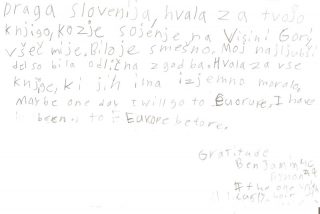 Draga slovenija, hvala za tvojo
knjigo, Kozje sojenje na Višini Gori,
všeč mi je, Bilo je smešno, Moj najljubši
del so bila odlična zgodba. Hvala za vse
knjige, ki jih ima izjemno morale,
Maybe one day I will go to Euorure, I have
been to Europe before.
Gratitude
Benjamin
# the one